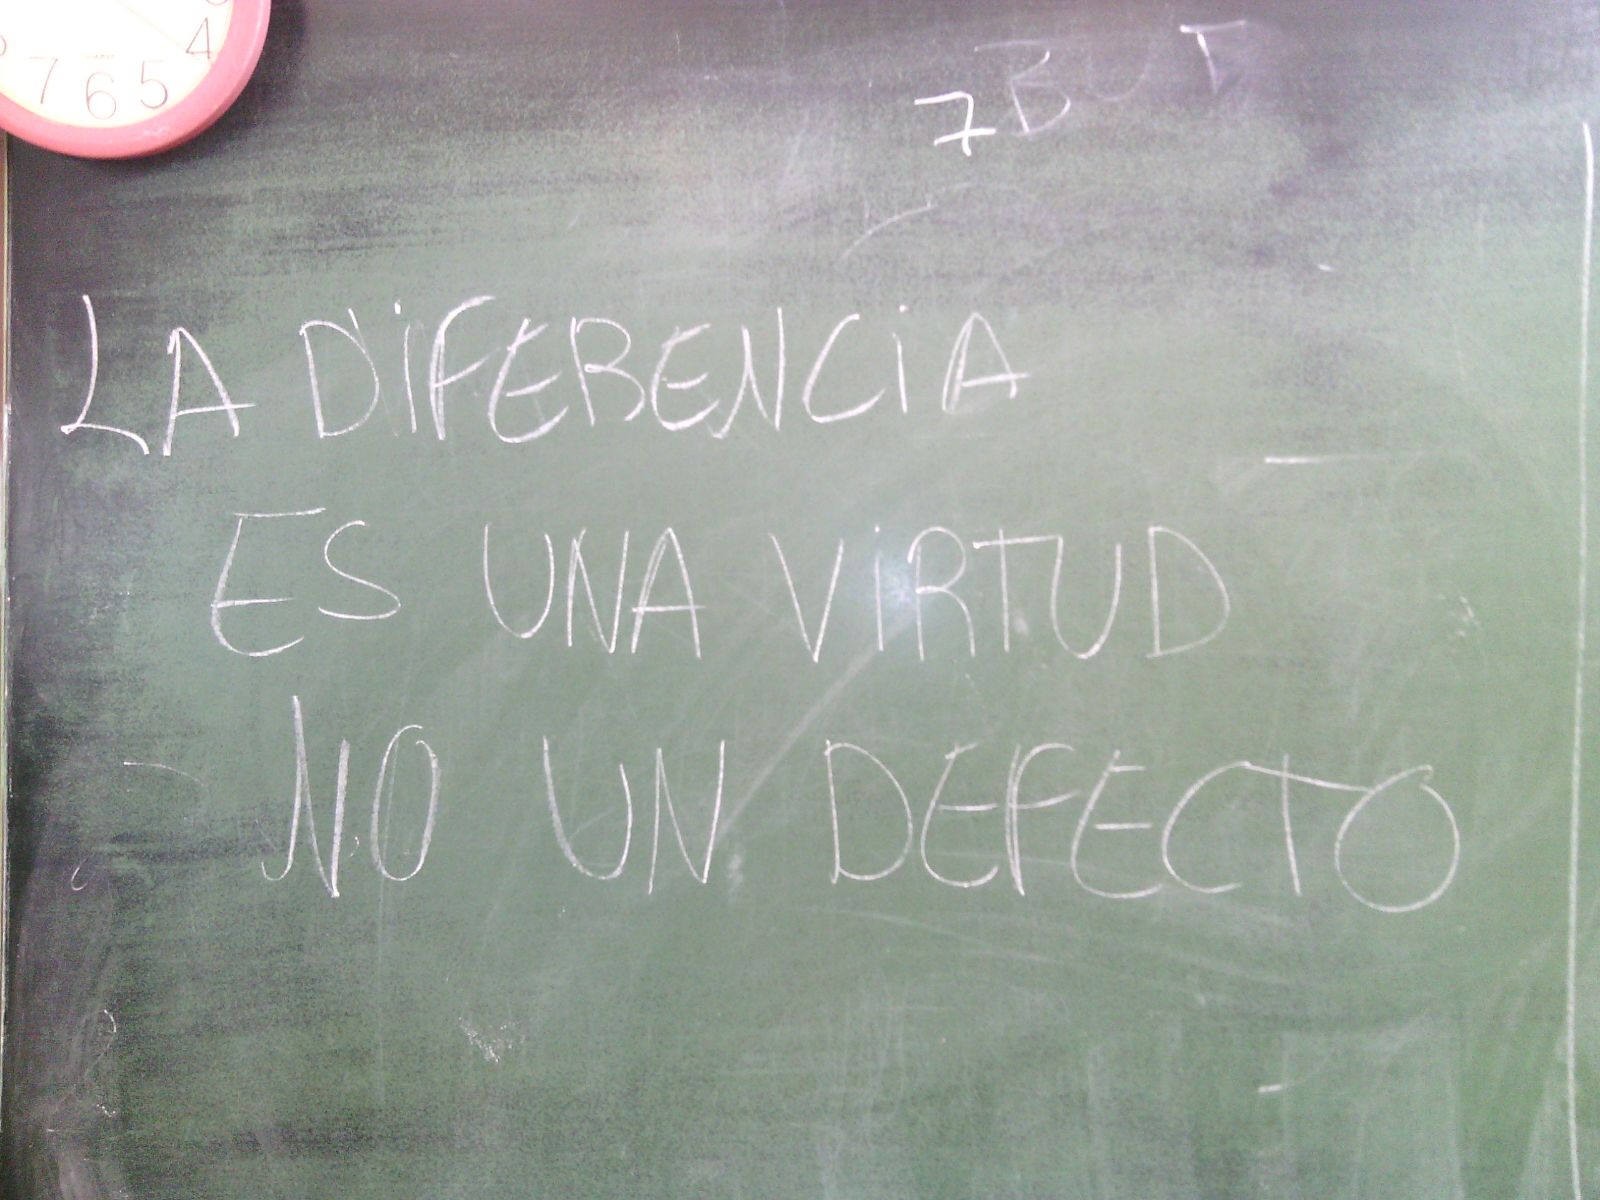 4
7 6 5
7 B U T
LA DiFERENCiA
ES UNA ViRTUD
NO UN DEFECTO